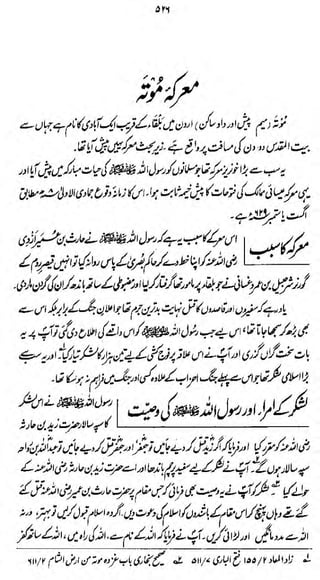 ۵۲۶
معرکۂ مُوْتَہ
مُؤتَہ (میم پیش اور واو ساکن) اردن میں بَلْقَاء کے قریب ایک آبادی کا نام ہے جہاں سے
بیت المقدس دو دن کی مسافت پر واقع ہے۔ زیر بحث معرکہ یہیں پیش آیا تھا۔
یہ سب سے بڑا خونریز معرکہ تھا جو مسلمانوں کو رسول اللہ ﷺ کی حیات مبارکہ میں پیش آیا اور
یہی معرکہ عیسائی ممالک کی فتوحات کا پیش خیمہ ثابت ہوا۔ اس کا زمانۂ وقوع جمادی الاولیٰ ۸ھ مطابق
اگست یا ستمبر ۶۲۹ء ہے۔
معرکہ کا سبب
اس معرکے کا سبب یہ ہے کہ رسول اللہ ﷺ نے حارث بن عُمَیر اَزْدِی
رضی اللہ عنہ کو اپنا خط دے کر حاکمِ بُصْریٰ کے پاس روانہ کیا تو انہیں قیصرِ روم کے
گورنر شرحبیل بن عمرو غسانی نے جو بلقاء پر مامور تھا گرفتار کر لیا اور مضبوطی کے ساتھ باندھ کر ان کی گردن ماردی۔
یاد رہے کہ سفیروں اور قاصدوں کا قتل نہایت بدترین جرم تھا جو اعلانِ جنگ کے برابر بلکہ اس سے
بھی بڑھ کر سمجھا جاتا تھا، اس لیے جب رسول اللہ ﷺ کو اس واقعے کی اطلاع دی گئی تو آپ پر یہ
بات سخت گراں گزری اور آپ نے اس علاقہ پر فوج کشی کے لیے تین ہزار کا لشکر تیار کیا۔ اور یہ سب سے
بڑا اسلامی لشکر تھا جو اس سے پہلے جنگِ احزاب کے علاوہ کسی اور جنگ میں فراہم نہ ہو سکا تھا۔
لشکر کے امراء اور رسول اللہ ﷺ کی وصیت
رسول اللہ ﷺ نے اس لشکر
کا سپہ سالار حضرت زید بن حارثہ
رضی اللہ عنہ کو مقرر کیا اور فرمایا کہ اگر زید قتل کر دیے جائیں تو جعفر اور جعفر قتل کر دیے جائیں تو عبداللہ بن رواحہ
سپہ سالار ہوں گے۔ آپ نے لشکر کے لیے سفید پرچم باندھا اور اسے حضرت زید بن حارثہ رضی اللہ عنہ کے
حوالے کیا۔ لشکر کو آپ نے یہ وصیت بھی فرمائی کہ جس مقام پر حضرت حارث بن عمیر رضی اللہ عنہ قتل کئے
گئے تھے وہاں پہنچ کر اس مقام کے باشندوں کو اسلام کی دعوت دیں۔ اگر وہ اسلام قبول کر لیں تو بہتر، ورنہ
اللہ سے مدد مانگیں اور لڑائی کریں۔ آپ نے فرمایا کہ اللہ کے نام سے، اللہ کی راہ میں، اللہ کے ساتھ کفر
زاد المعاد ۲/۱۵۵ فتح الباری ۷/۵۱۱ صحیح بخاری باب غزوۃ موتۃ من ارض الشام ۲/۶۱۱